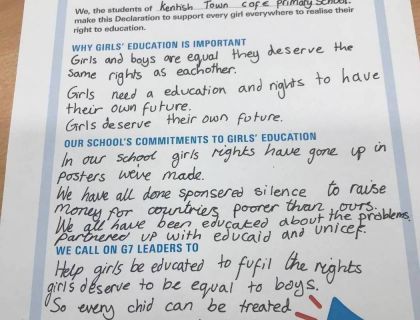 We, the students of Kentish Town cofe primary School.
make this Declaration to support every girl everywhere to realise their
right to education.
WHY GIRLS' EDUCATION IS IMPORTANT
Girls and boys are equal they deserve the
same rights as eachother.
Girls need a education and rights to have
their own future.
Girls deserve their own future.
OUR SCHOOL'S COMMITMENTS TO GIRLS' EDUCATION
In our school girls rights have gone up in
posters we've made.
We have all done sponsered silence to raise
money for countries poorer than ours.
We all have been educated about the problems.
partnered up with educaid and unicef.
WE CALL ON G7 LEADERS TO
Help girls be educated to fufil the rights
girls deserve to be equal to boys.
So every chid can be treated